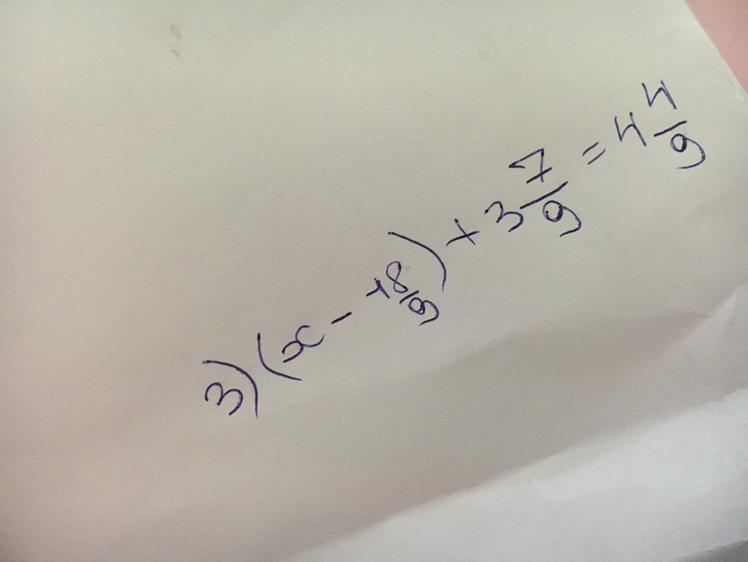 3) (x - 1 8/9) + 3 7/9 = 4 4/9